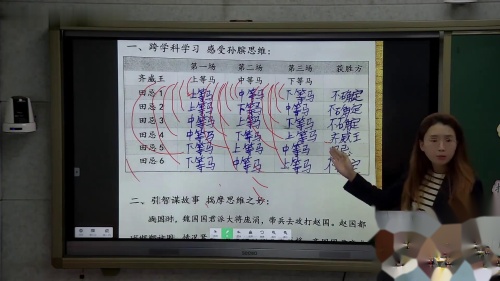 一、跨学科学习 感受孙膑思维：
第一场 第二场 第三场 获胜方
齐威王 上等马 中等马 下等马
田忌 1 上等马 中等马 下等马 不确定
田忌 2 上等马 下等马 中等马 不确定
田忌 3 中等马 上等马 下等马 不确定
田忌 4 中等马 下等马 上等马 齐威王
田忌 5 下等马 上等马 中等马
田忌 6 下等马 中等马 上等马
二、引智谋故事 揣摩思维之妙：
魏国国君派大将庞涓，带兵去攻打赵国。赵国都